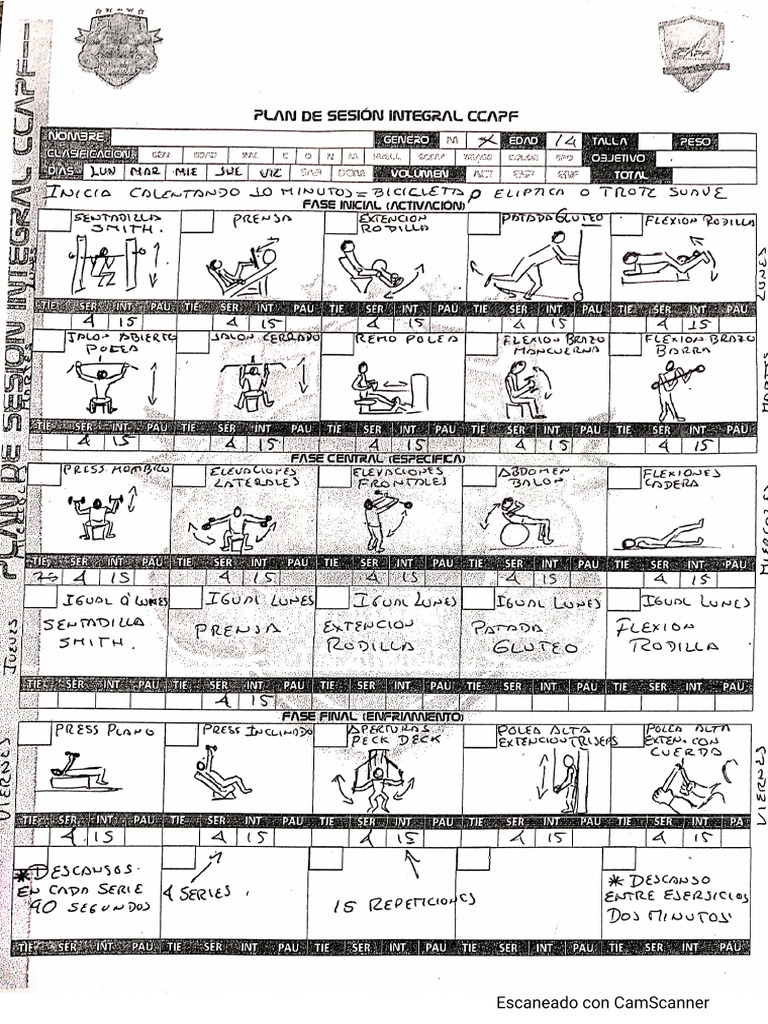 PLAN DE SESIÓN INTEGRAL CCAPF
PLAN DE SESIÓN INTEGRAL CCAPF
NOMBRE GENERO M EDAD 14 TALLA PESO
CLASIFICACIÓN OBJETIVO
DIAS LUN MAR MIE JUE VIE SAB DOM VOLUMEN TOTAL
INICIA CALENTANDO 10 MINUTOS = BICICLETA O ELIPTICA O TROTE SUAVE
FASE INICIAL (ACTIVACIÓN)
LUNES
SENTADILLA SMITH. PRENSA EXTENCION RODILLA PATADA GLUTEO FLEXION RODILLA
LUNES
TIE SER INT PAU TIE SER INT PAU TIE SER INT PAU TIE SER INT PAU TIE SER INT PAU
4 15 4 15 4 15 4 15 4 15
MARTES
JALON ABIERTO POLEA JALON CERRADO REMO POLEA FLEXION BRAZO MANCUERNA FLEXION BRAZO BARRA
MARTES
TIE SER INT PAU TIE SER INT PAU TIE SER INT PAU TIE SER INT PAU TIE SER INT PAU
4 15 4 15 4 15 4 15 4 15
FASE CENTRAL (ESPECIFICA)
PRESS HOMBRO ELEVACIONES LATERALES ELEVACIONES FRONTALES ABDOMEN BALON FLEXIONES CADERA
MIERCOLES
TIE SER INT PAU TIE SER INT PAU TIE SER INT PAU TIE SER INT PAU TIE SER INT PAU
4 15 4 15 4 15 4 15 4 15
JUEVES
IGUAL A LUNES IGUAL LUNES IGUAL LUNES IGUAL LUNES IGUAL LUNES
SENTADILLA SMITH. PRENSA EXTENCION RODILLA PATADA GLUTEO FLEXION RODILLA
TIE SER INT PAU TIE SER INT PAU TIE SER INT PAU TIE SER INT PAU TIE SER INT PAU
4 15
FASE FINAL (ENFRIAMIENTO)
VIERNES
PRESS PLANO PRESS INCLINADO APERTURAS PECK DECK POLEA ALTA EXTENCION TRISEPS POLEA ALTA EXTEN CON CUERDA
VIERNES
TIE SER INT PAU TIE SER INT PAU TIE SER INT PAU TIE SER INT PAU TIE SER INT PA
4 15 4 15 4 15 4 15 4 15
* DESCANSOS
EN CADA SERIE
90 SEGUNDOS
4 SERIES.
15 REPETICIONES
* DESCANSO
ENTRE EJERSICIOS
DOS MINUTOS
TIE SER INT PAU TIE SER INT PAU TIE SER INT PAU TIE SER INT PAU TIE SER INT PAU
Escaneado con CamScanner